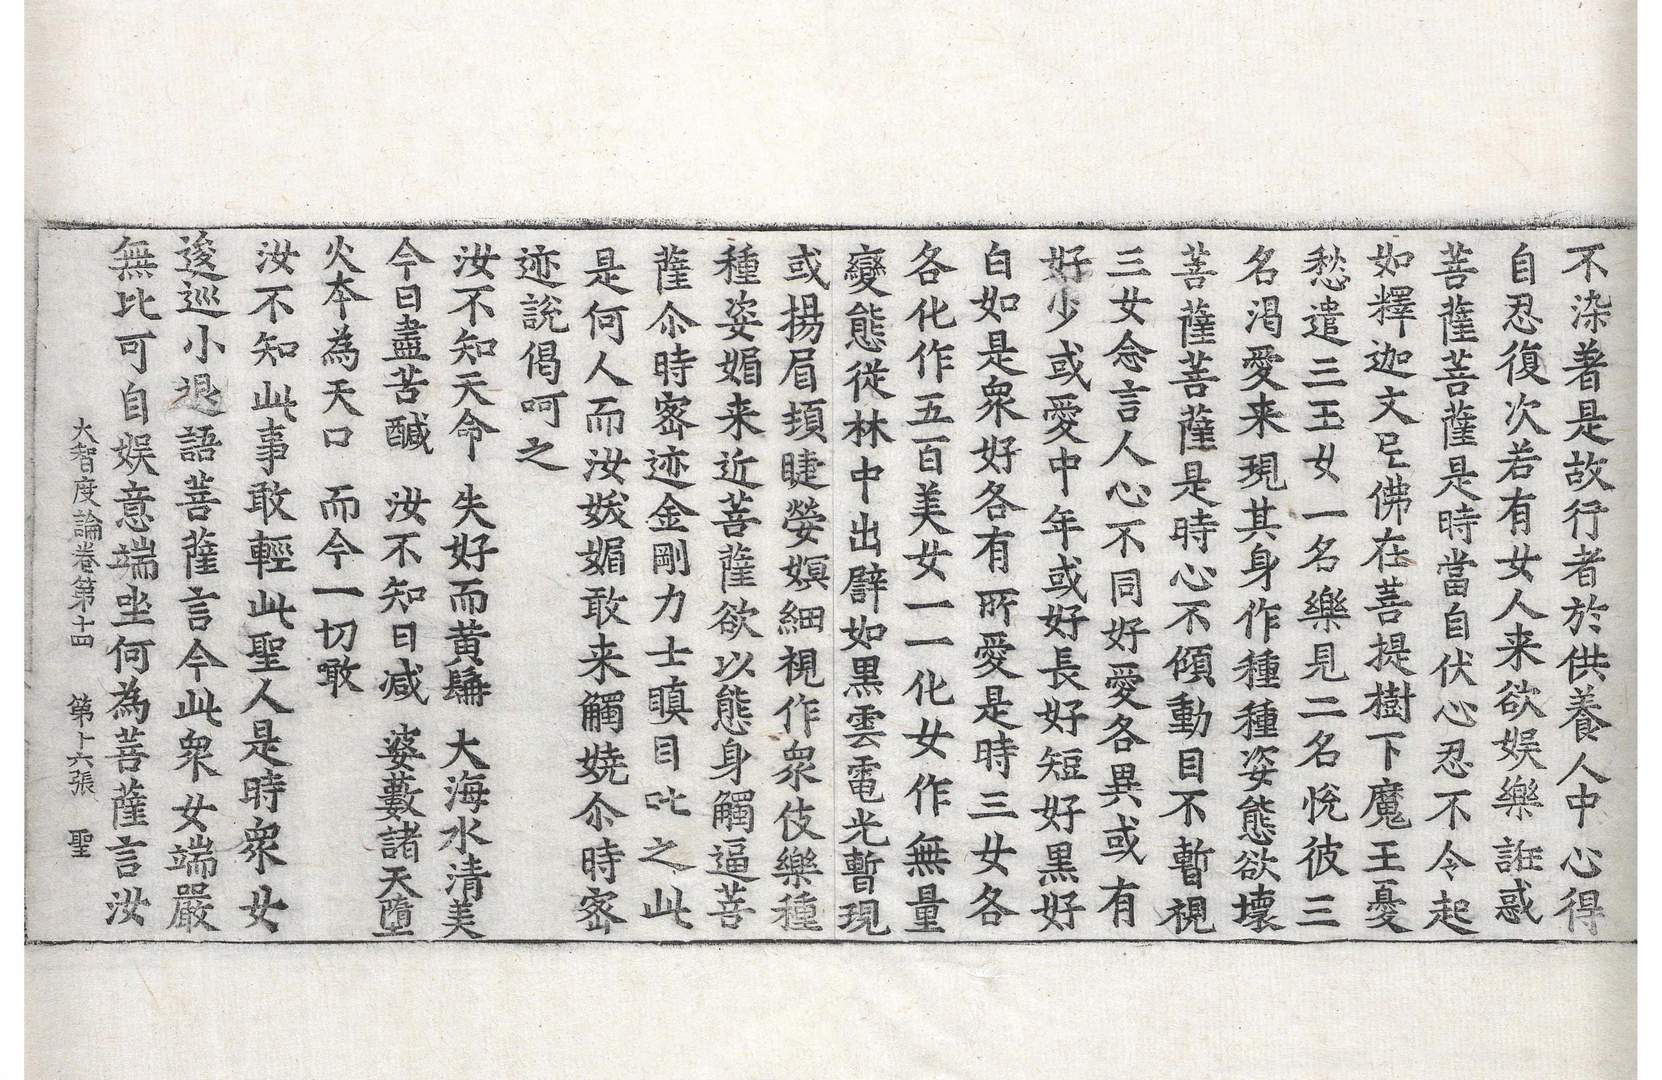 不染著是故行者於供養人中心得
自忍復次若有女人来欲娛樂誑惑
菩薩菩薩是時當自伏心忍不令起
如釋迦文尼佛在菩提樹下魔王憂
愁遣三玉女一名樂見二名悅彼三
名渴愛来現其身作種種姿態欲壞
菩薩菩薩是時心不傾動目不暫視
三女念言人心不同好愛各異或有
好少或愛中年或好長好短好黒好
白如是衆好各有所愛是時三女各
各化作五百美女一一化女作無量
變態從林中出辟如黒雲電光暫現
或揚眉頓睫嫈嫇細視作衆伎樂種
種姿媚来近菩薩欲以態身觸逼菩
薩尒時密迹金剛力士瞋目叱之此
是何人而汝妖媚敢来觸嬈尒時密
迹說偈呵之
汝不知天命　失好而黄髯　大海水清美
今日盡苦醎　汝不知日减　婆藪諸天墮
火本為天口　而今一切噉
汝不知此事敢輕此聖人是時衆女
逡巡小退語菩薩言今此衆女端嚴
無比可自娛意端坐何為菩薩言汝
大智度論卷第十四　第十六張　聖